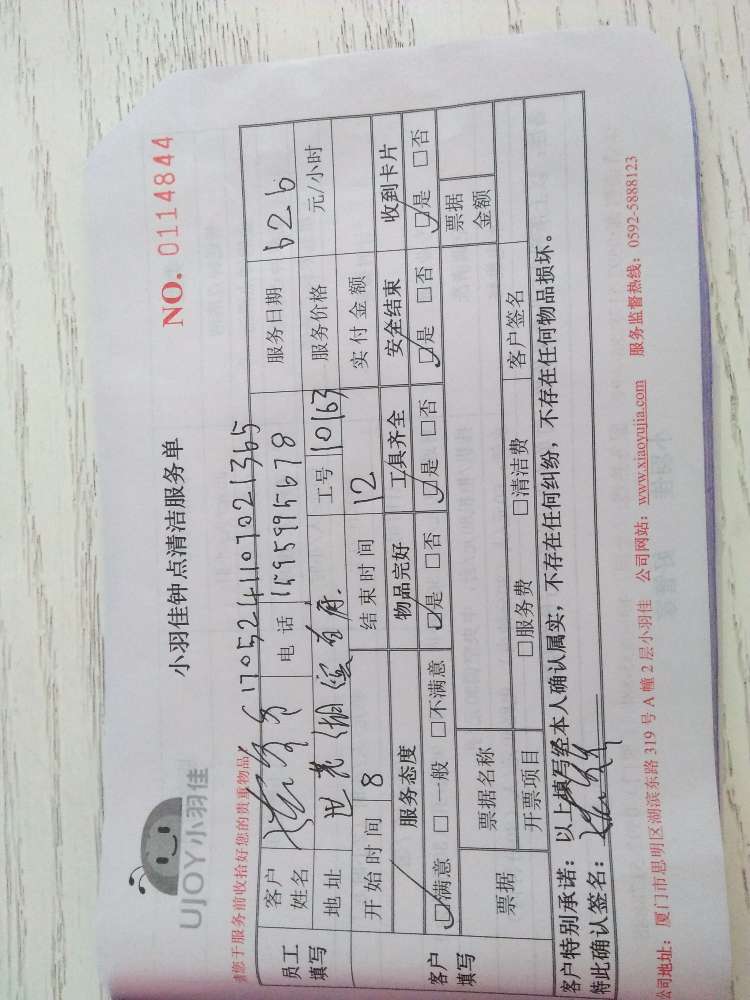 UJOY小羽佳
小羽佳钟点清洁服务单
NO. 0114844
您于服务前收拾好您的贵重物品
170524110702 1365
员工填写
客户姓名
电话 15959915678
服务日期 626
地址
工号 10163
服务价格 元/小时
客户填写
开始时间 8
结束时间 12
实付金额
服务态度 物品完好 工具齐全 安全结束 收到卡片
☑满意 □一般 □不满意 ☑是 □否 ☑是 □否 ☑是 □否 ☑是 □否
票据 票据名称 票据金额
开票项目 □服务费 □清洁费 客户签名
客户特别承诺:以上填写经本人确认属实,不存在任何纠纷,不存在任何物品损坏。
特此确认签名:
公司地址:厦门市思明区湖滨东路 319 号 A 幢 2 层小羽佳 公司网站:www.xiaoyujia.com 服务监督热线:0592-5888123